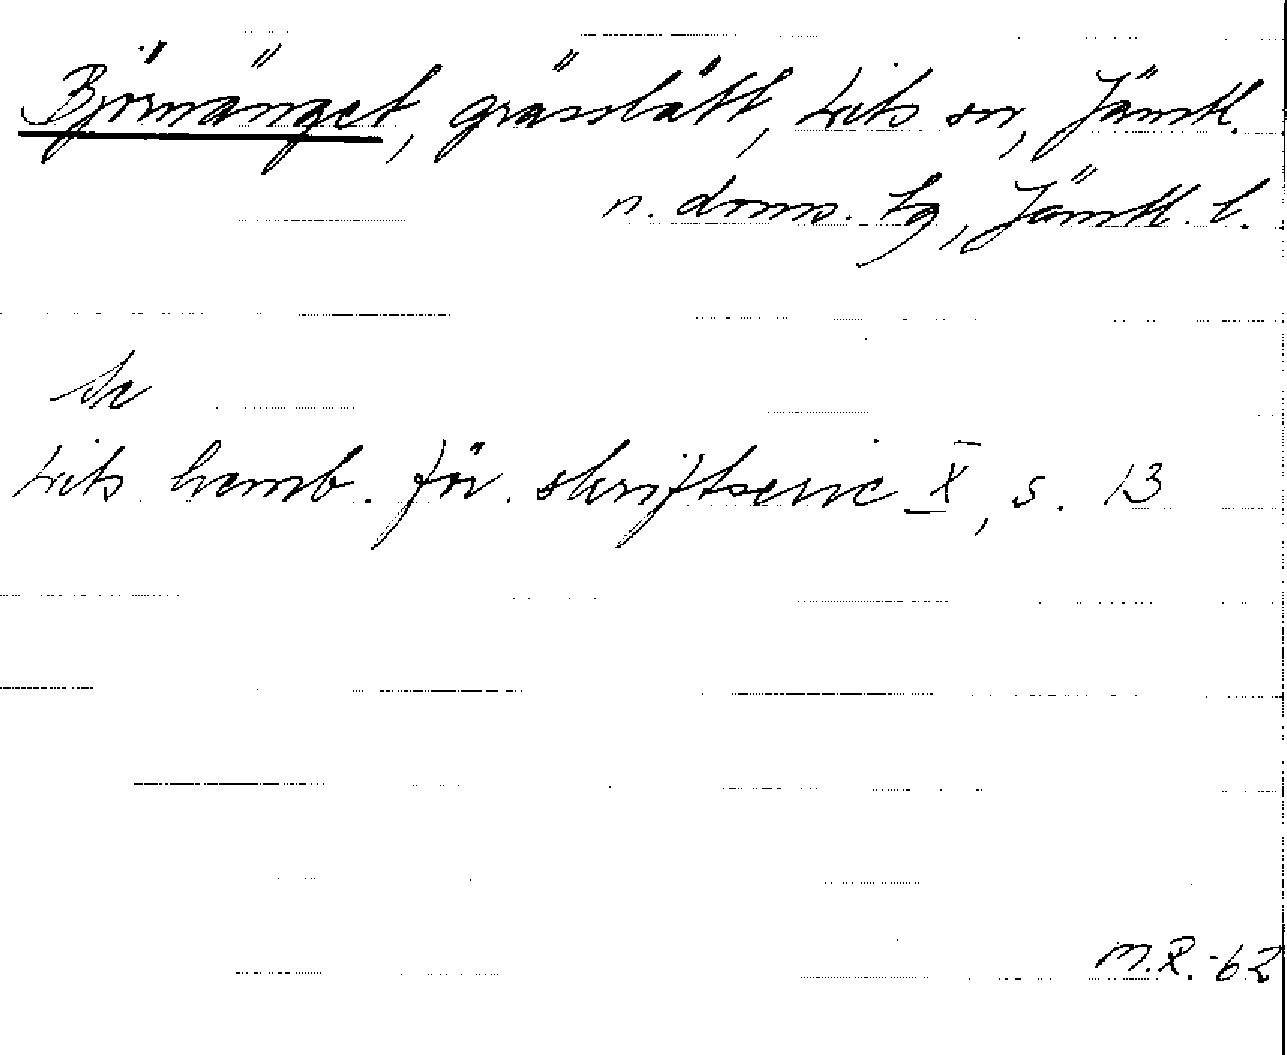 Björnänget, grässlått, Lits sn, Jämtl.
n. doms. tg, Jämtl. l.
Se
Lits hemb. för. skriftserie X, s. 13
M.R. -62